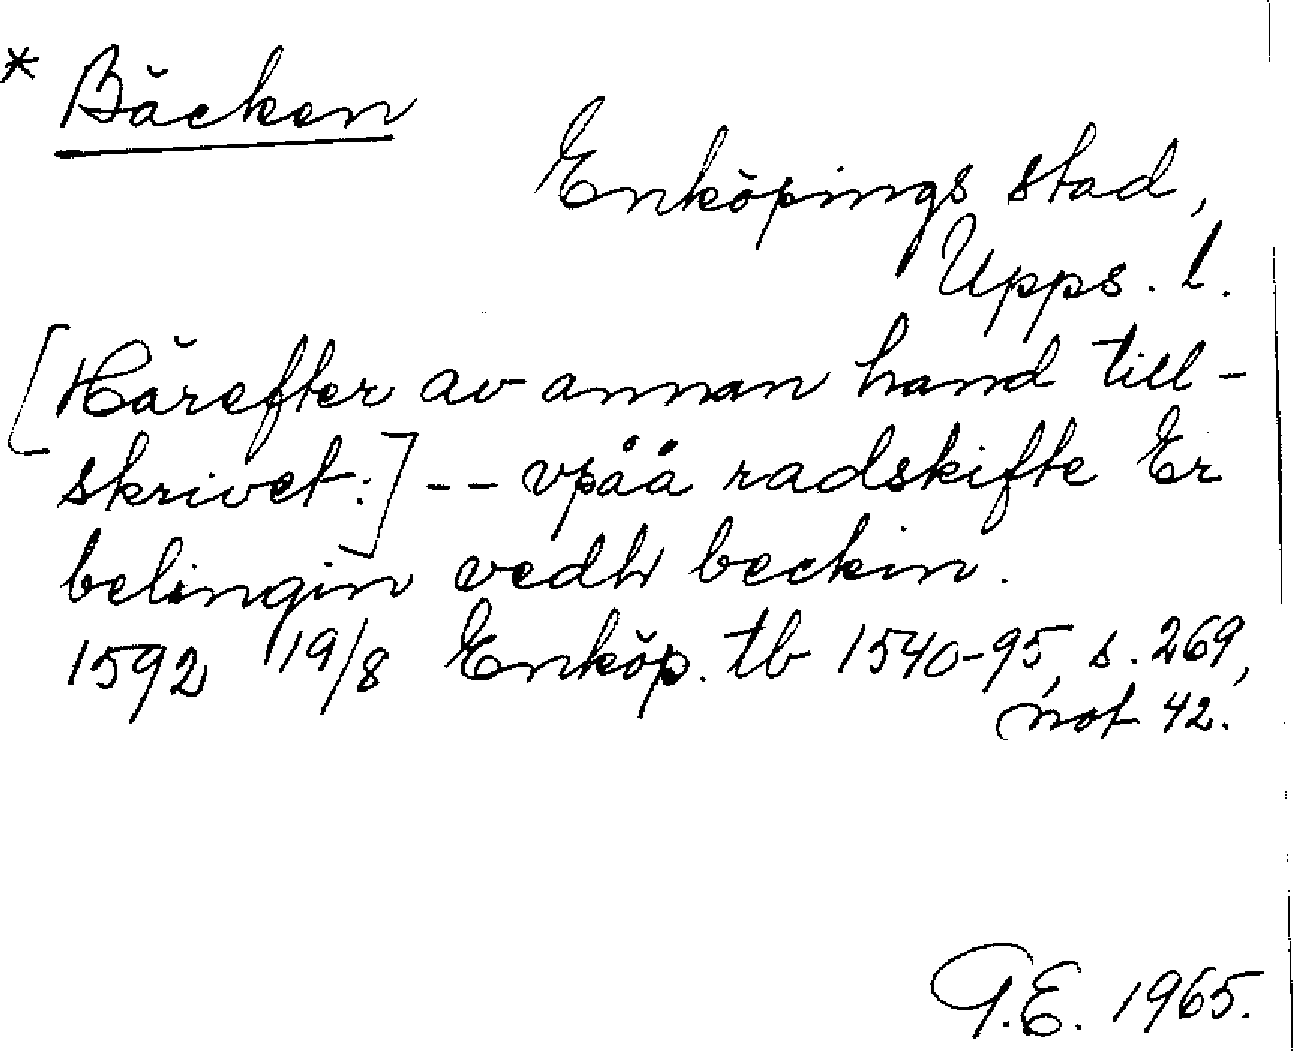 * Bäcken
Enköpings stad,
Upps. l.
[Härefter av annan hand till-
skrivet:] -- vpåå radskifte Er
belingin vedh beckin.
1592 19/8 Enköp. tb 1540-95, s. 269,
not 42.
G.E. 1965.